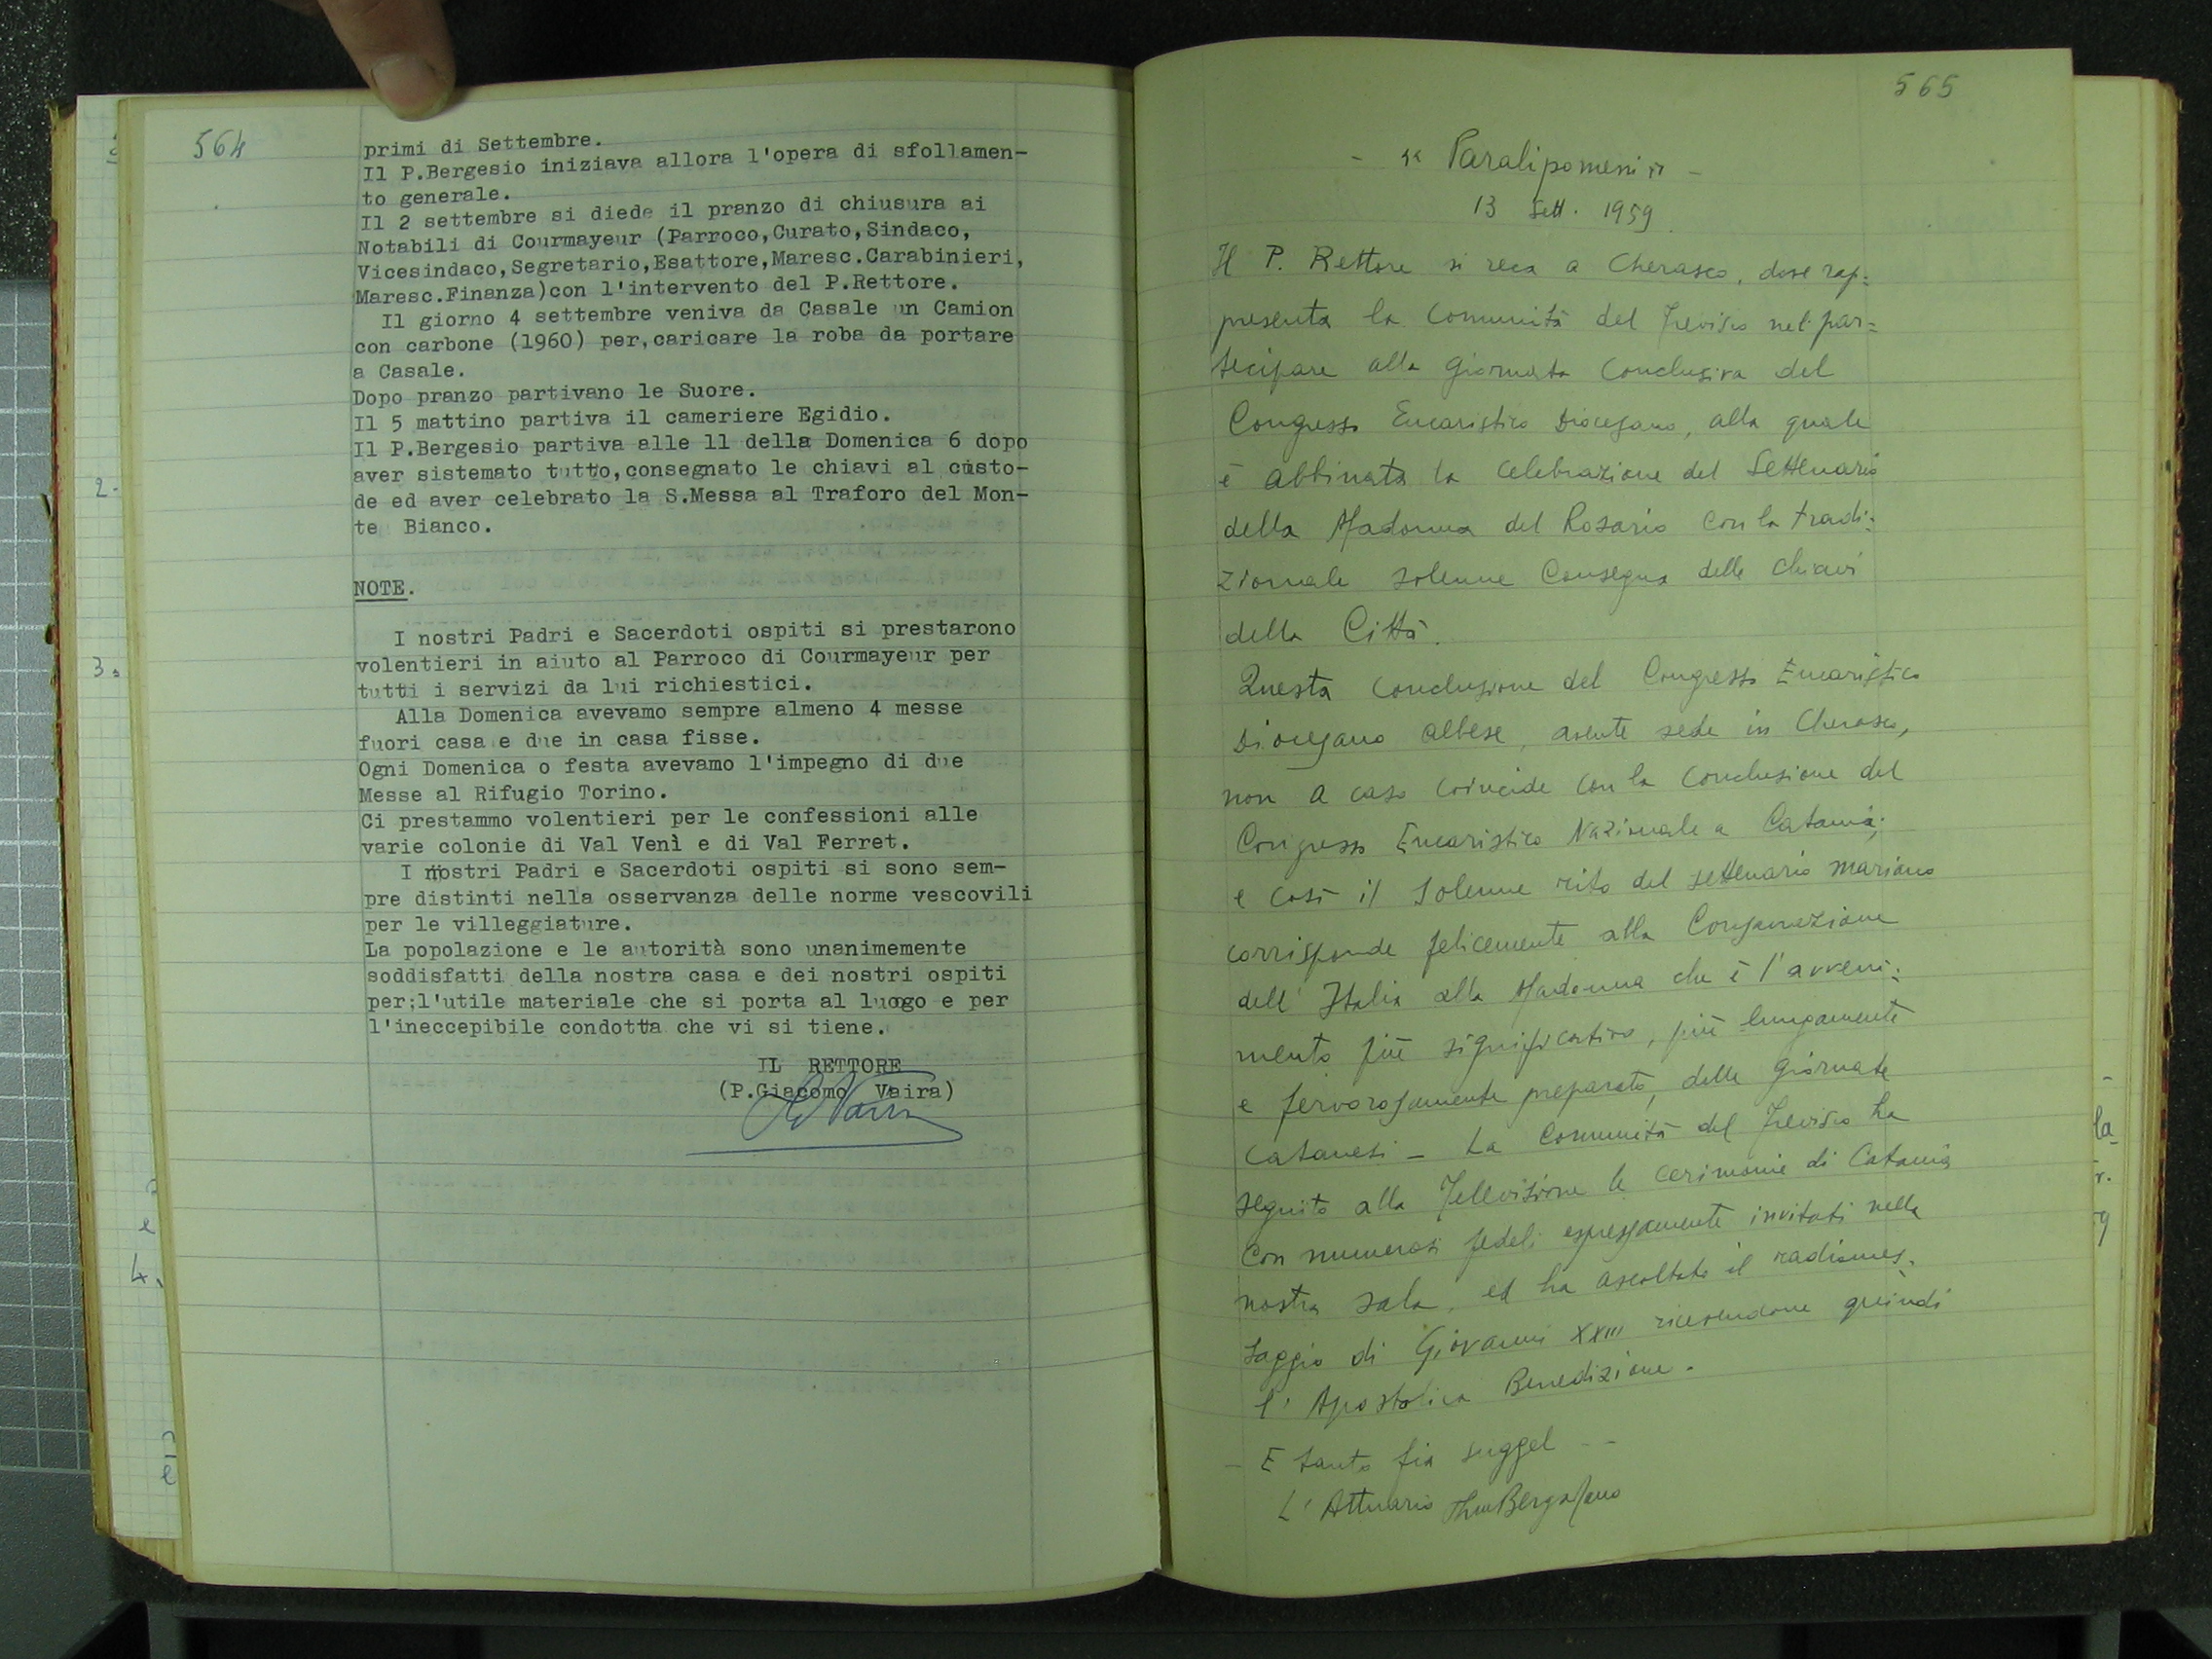 564
primi di Settembre.
Il P.Bergesio iniziava allora l'opera di sfollamen-
to generale.
Il 2 settembre si diede il pranzo di chiusura ai
Notabili di Courmayeur (Parroco,Curato,Sindaco,
Vicesindaco,Segretario,Esattore,Maresc.Carabinieri,
Maresc.Finanza)con l'intervento del P.Rettore.
Il giorno 4 settembre veniva da Casale un Camion
con carbone (1960) per,caricare la roba da portare
a Casale.
Dopo pranzo partivano le Suore.
Il 5 mattino partiva il cameriere Egidio.
Il P.Bergesio partiva alle 11 della Domenica 6 dopo
aver sistemato tutto,consegnato le chiavi al custo-
de ed aver celebrato la S.Messa al Traforo del Mon-
te Bianco.
NOTE.
I nostri Padri e Sacerdoti ospiti si prestarono
volentieri in aiuto al Parroco di Courmayeur per
tutti i servizi da lui richiestici.
Alla Domenica avevamo sempre almeno 4 messe
fuori casa e due in casa fisse.
Ogni Domenica o festa avevamo l'impegno di due
Messe al Rifugio Torino.
Ci prestammo volentieri per le confessioni alle
varie colonie di Val Venì e di Val Ferret.
I nostri Padri e Sacerdoti ospiti si sono sem-
pre distinti nella osservanza delle norme vescovili
per le villeggiature.
La popolazione e le autorità sono unanimemente
soddisfatti della nostra casa e dei nostri ospiti
per;l'utile materiale che si porta al luogo e per
l'ineccepibile condotta che vi si tiene.
IL RETTORE
(P.Giacomo Vaira)
565
- « Paralipomeni » -
13 Sett. 1959
Il P. Rettore si reca a Cherasco, dove rap=
presenta la Comunità del Trevisio nel par=
tecipare alla Giornata Conclusiva del
Congresso Eucaristico Diocesano, alla quale
è abbinata la celebrazione del Settenario
della Madonna del Rosario con la tradi=
zionale solenne Consegna delle chiavi
della Città.
Questa conclusione del Congresso Eucaristico
Diocesano albese, avente sede in Cherasco,
non a caso coincide con la conclusione del
Congresso Eucaristico Nazionale a Catania;
e così il Solenne rito del settenario mariano
corrisponde felicemente alla Consacrazione
dell'Italia alla Madonna che è l'avveni=
mento più significativo, più lungamente
e fervorosamente preparato, delle giornate
catanesi - La Comunità del Trevisio ha
seguito alla Televisione le cerimonie di Catania
con numerosi fedeli espressamente invitati nella
nostra sala, ed ha ascoltato il radiomes=
saggio di Giovanni XXIII ricevendone quindi
l'Apostolica Benedizione.
- E tanto fia suggel --
L'Attuario